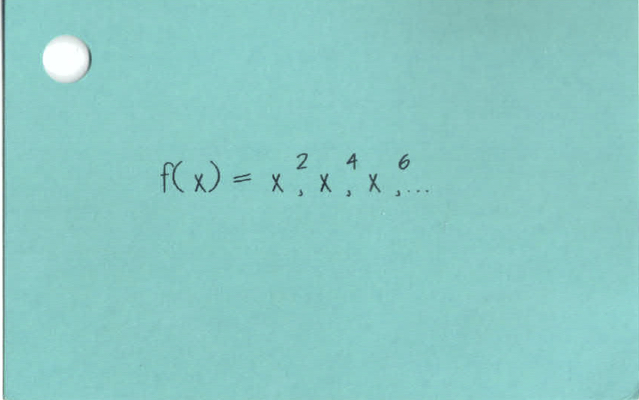 f(x) = x², x⁴, x⁶, ...